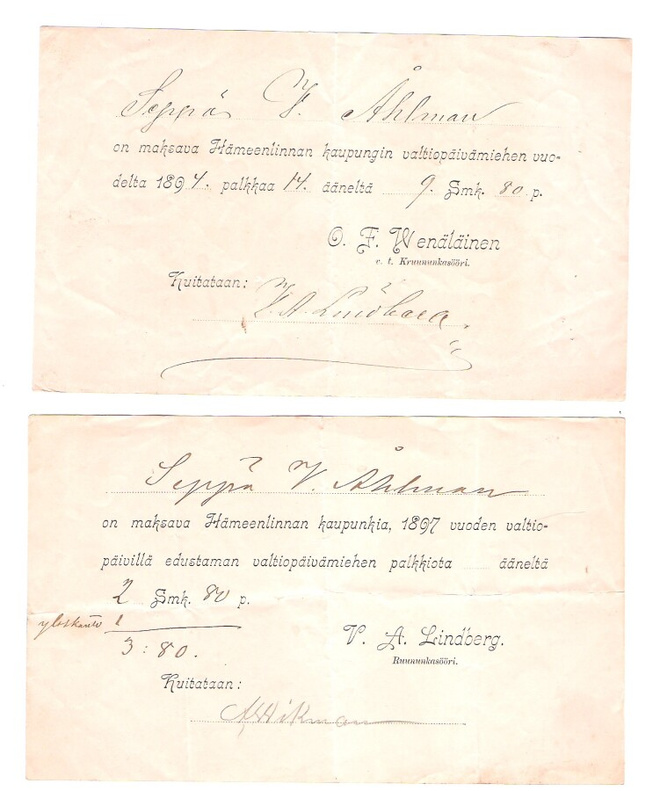 Seppä V. Åhlman
on maksava Hämeenlinnan kaupungin valtiopäivämiehen vuo-
delta 1894. palkkaa 14. ääneltä 9. Smk. 80 p.
O. F. Wenäläinen
v. t. Krununkasööri.
Kuitataan:
V. A. Lindberg
Seppä V. Åhlman
on maksava Hämeenlinnan kaupunkia, 1897 vuoden valtio-
päivillä edustaman valtiopäivämiehen palkkiota ääneltä
2 Smk. 80 p.
1
3:80.
V. A. Lindberg.
Ruununkasööri.
Kuitataan:
Wikman